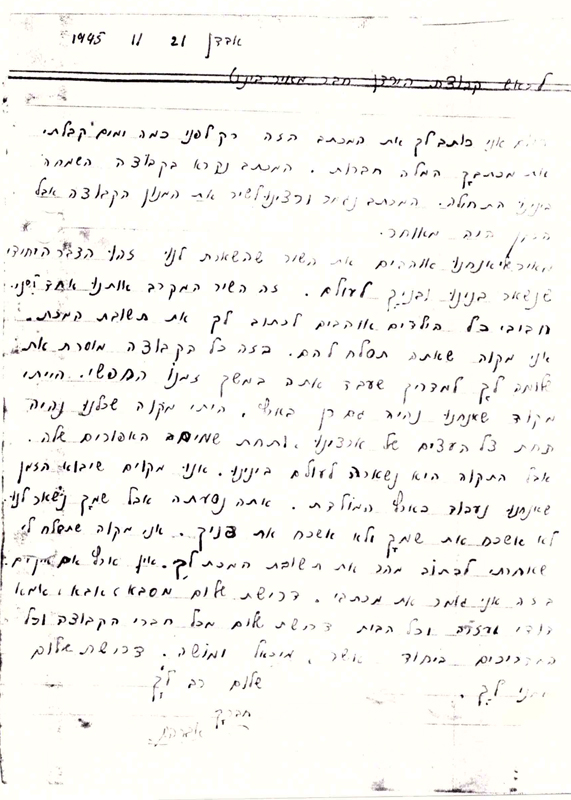 אבדן 21 11 1945
לראש קבוצת הירדן חבר מאיר בינט
היום אני כותב לך את המכתב הזה רק לפני כמה ימים קבלתי
את מכתבך המלה חברות. המכתב נקרא בקבוצה השמחה
בינינו התחילה. המכתב נגמר ורצינו לשיר את המנון הקבוצה אבל
הזמן היה מאוחר.
מאיר אנחנו אוהבים את השיר שהשארת לנו זהו הדבר היחידי
שנשאר בנינו ובניך לעולם. זה השיר המקרב אותנו אחד לשני.
חבובי כל הילדים אוהבים לכתוב לך את תשובת המכת.
אני מקוה שאתה תסלח להם. בזה כל הקבוצה מוסרת את
שלומה לך למדריך שעבד אתה במשך זמנו החפשי. הייתי
מקוה שאנחנו נהיה גם כן בארץ, היתי מקוה שכלנו נהיה
תחת צל העצים של ארצינו ותחת שמיה האפורים שלה.
אבל התקוה היא נשארה לעולם בינינו. אנו מקוים שיבוא הזמן
שאנחנו נעבוד בארץ המולדת. אתה נסעתה אבל שמך נשאר לנו
לא אשכח את שמך ולא אשכח את פניך. אני מקוה שתסלח לי
שאחרתי לכתוב מהר את תשובת המכתב לך. אין ארץ אם אין אדם
בזה אני גומר את מכתבי. דרישת שלום מסבא, אבא, אימא
דודי ועזרה וכל הבית דרישת שלום מכל חברי הקבוצה וכל
המדריכים ביחוד אשר, מיכאל ומושה. דרישת שלום
ממני לך.
שלום רב לך
חברך
אברהם